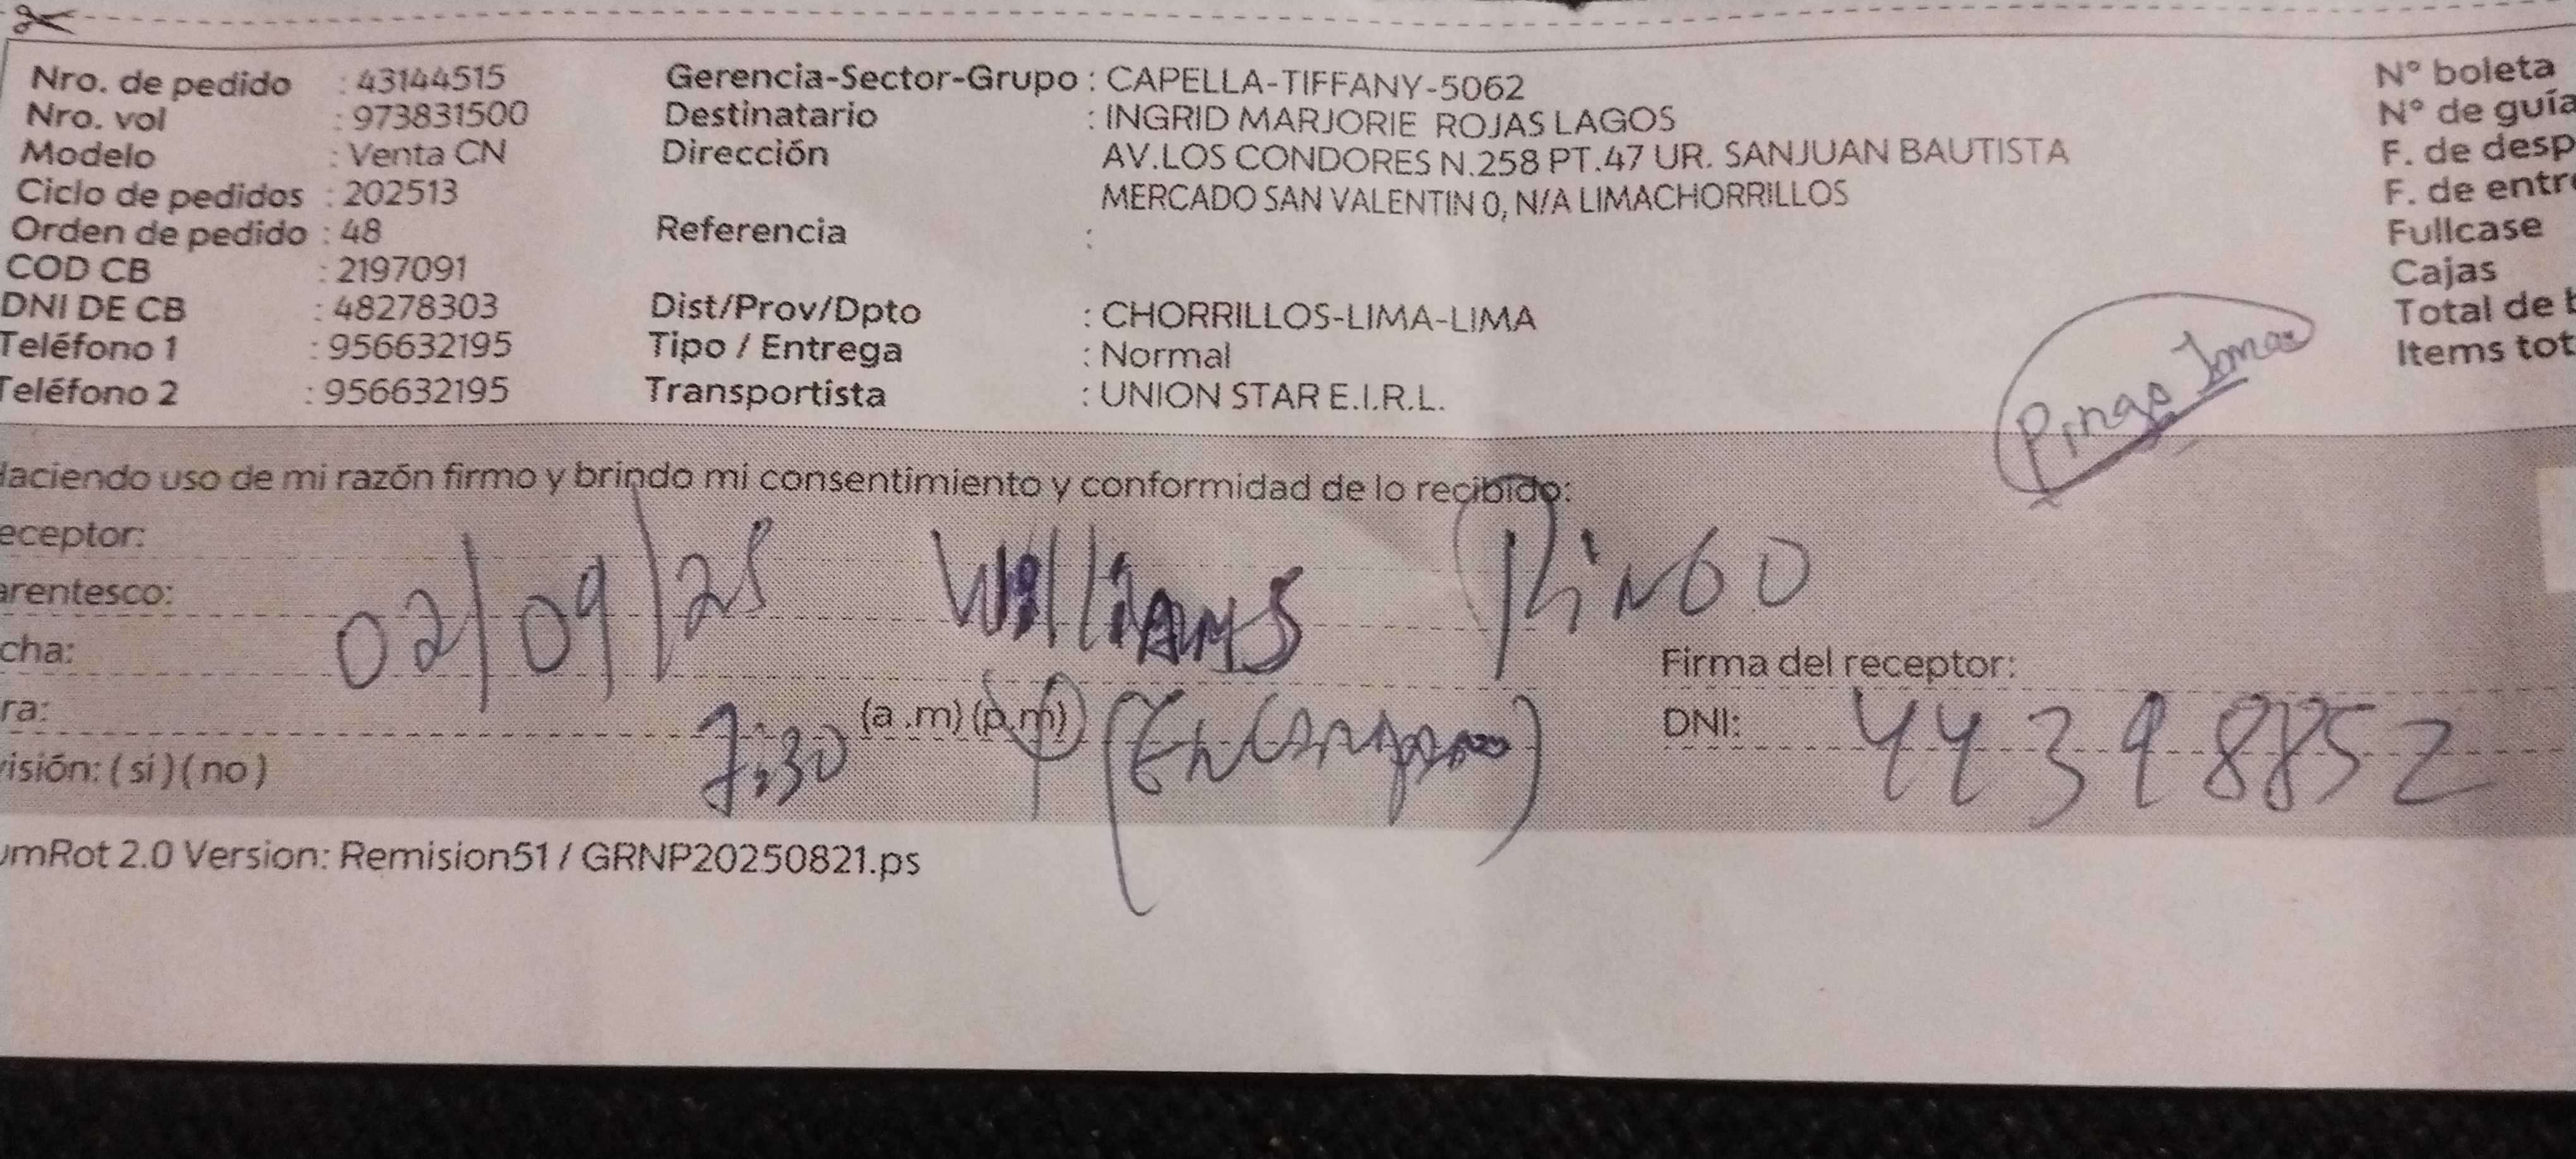 Nro. de pedido : 43144515 Gerencia-Sector-Grupo : CAPELLA-TIFFANY-5062 N° boleta
Nro. vol : 973831500 Destinatario : INGRID MARJORIE ROJAS LAGOS N° de guía
Modelo : Venta CN Dirección AV.LOS CONDORES N.258 PT.47 UR. SANJUAN BAUTISTA F. de desp
Ciclo de pedidos : 202513 MERCADO SAN VALENTIN 0, N/A LIMACHORRILLOS F. de entre
Orden de pedido : 48 Referencia : Fullcase
COD CB : 2197091 Cajas
DNI DE CB : 48278303 Dist/Prov/Dpto : CHORRILLOS-LIMA-LIMA Total de b
Teléfono 1 : 956632195 Tipo / Entrega : Normal Items tot
Teléfono 2 : 956632195 Transportista : UNION STAR E.I.R.L.
Pingo
Haciendo uso de mi razón firmo y brindo mi consentimiento y conformidad de lo recibido:
eceptor:
arentesco: 02/09/25 Williams PiNGO
cha: Firma del receptor:
ra: 7:30 (a.m) (p.m) (Encargado) DNI: 44398852
visión: (si) (no)
umRot 2.0 Version: Remision51 / GRNP20250821.ps